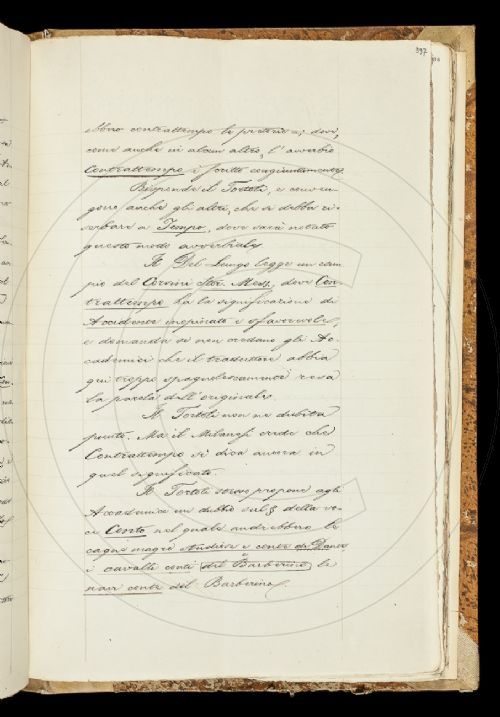 397
ebbero contrattempo le preteste =; dove,
come anche in alcun altro, l'avverbio
Contrattempo è scritto congiuntamente.
Risponde il Tortoli, e conven-
gono anche gli altri, che si debba ri-
serbare a Tempo, dove sarà notato
questo modo avverbiale.
Il Del Lungo legge un esem-
pio del Corsini Stor. Mess., dove Con-
trattempo ha la significazione di
Accidente inopinato e sfavorevole,
e domanda se non credano gli Ac-
cademici che il traduttore abbia
qui troppo spagnolescamente resa
la parola dell'originale.
Il Tortoli non ne dubita
punto. Ma il Milanesi crede che
Contrattempo si dica ancora in
quel significato.
Il Tortoli stesso propone agli
Accademici un dubbio sul § della vo-
ce Conto nel quale andrebbero le
cagne magre studiose e conte di Dante
i cavalli conti del Barberino e le
navi conte del Barberino.